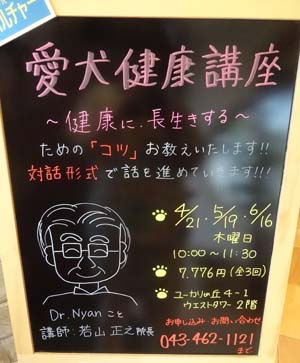 ルチャー
愛犬健康講座
~健康に、長生きする~
ための「コツ」お教えいたします!!
対話形式で話を進めていきます!!!
4/21・5/19・6/16
木曜日
10:00～11:30
7,776円(全3回)
ユーカリが丘4-1
ウエストタワー2階
Dr.Nyanこと
講師:若山正之院長
お申し込み・お問い合わせ
043-462-1121
まで